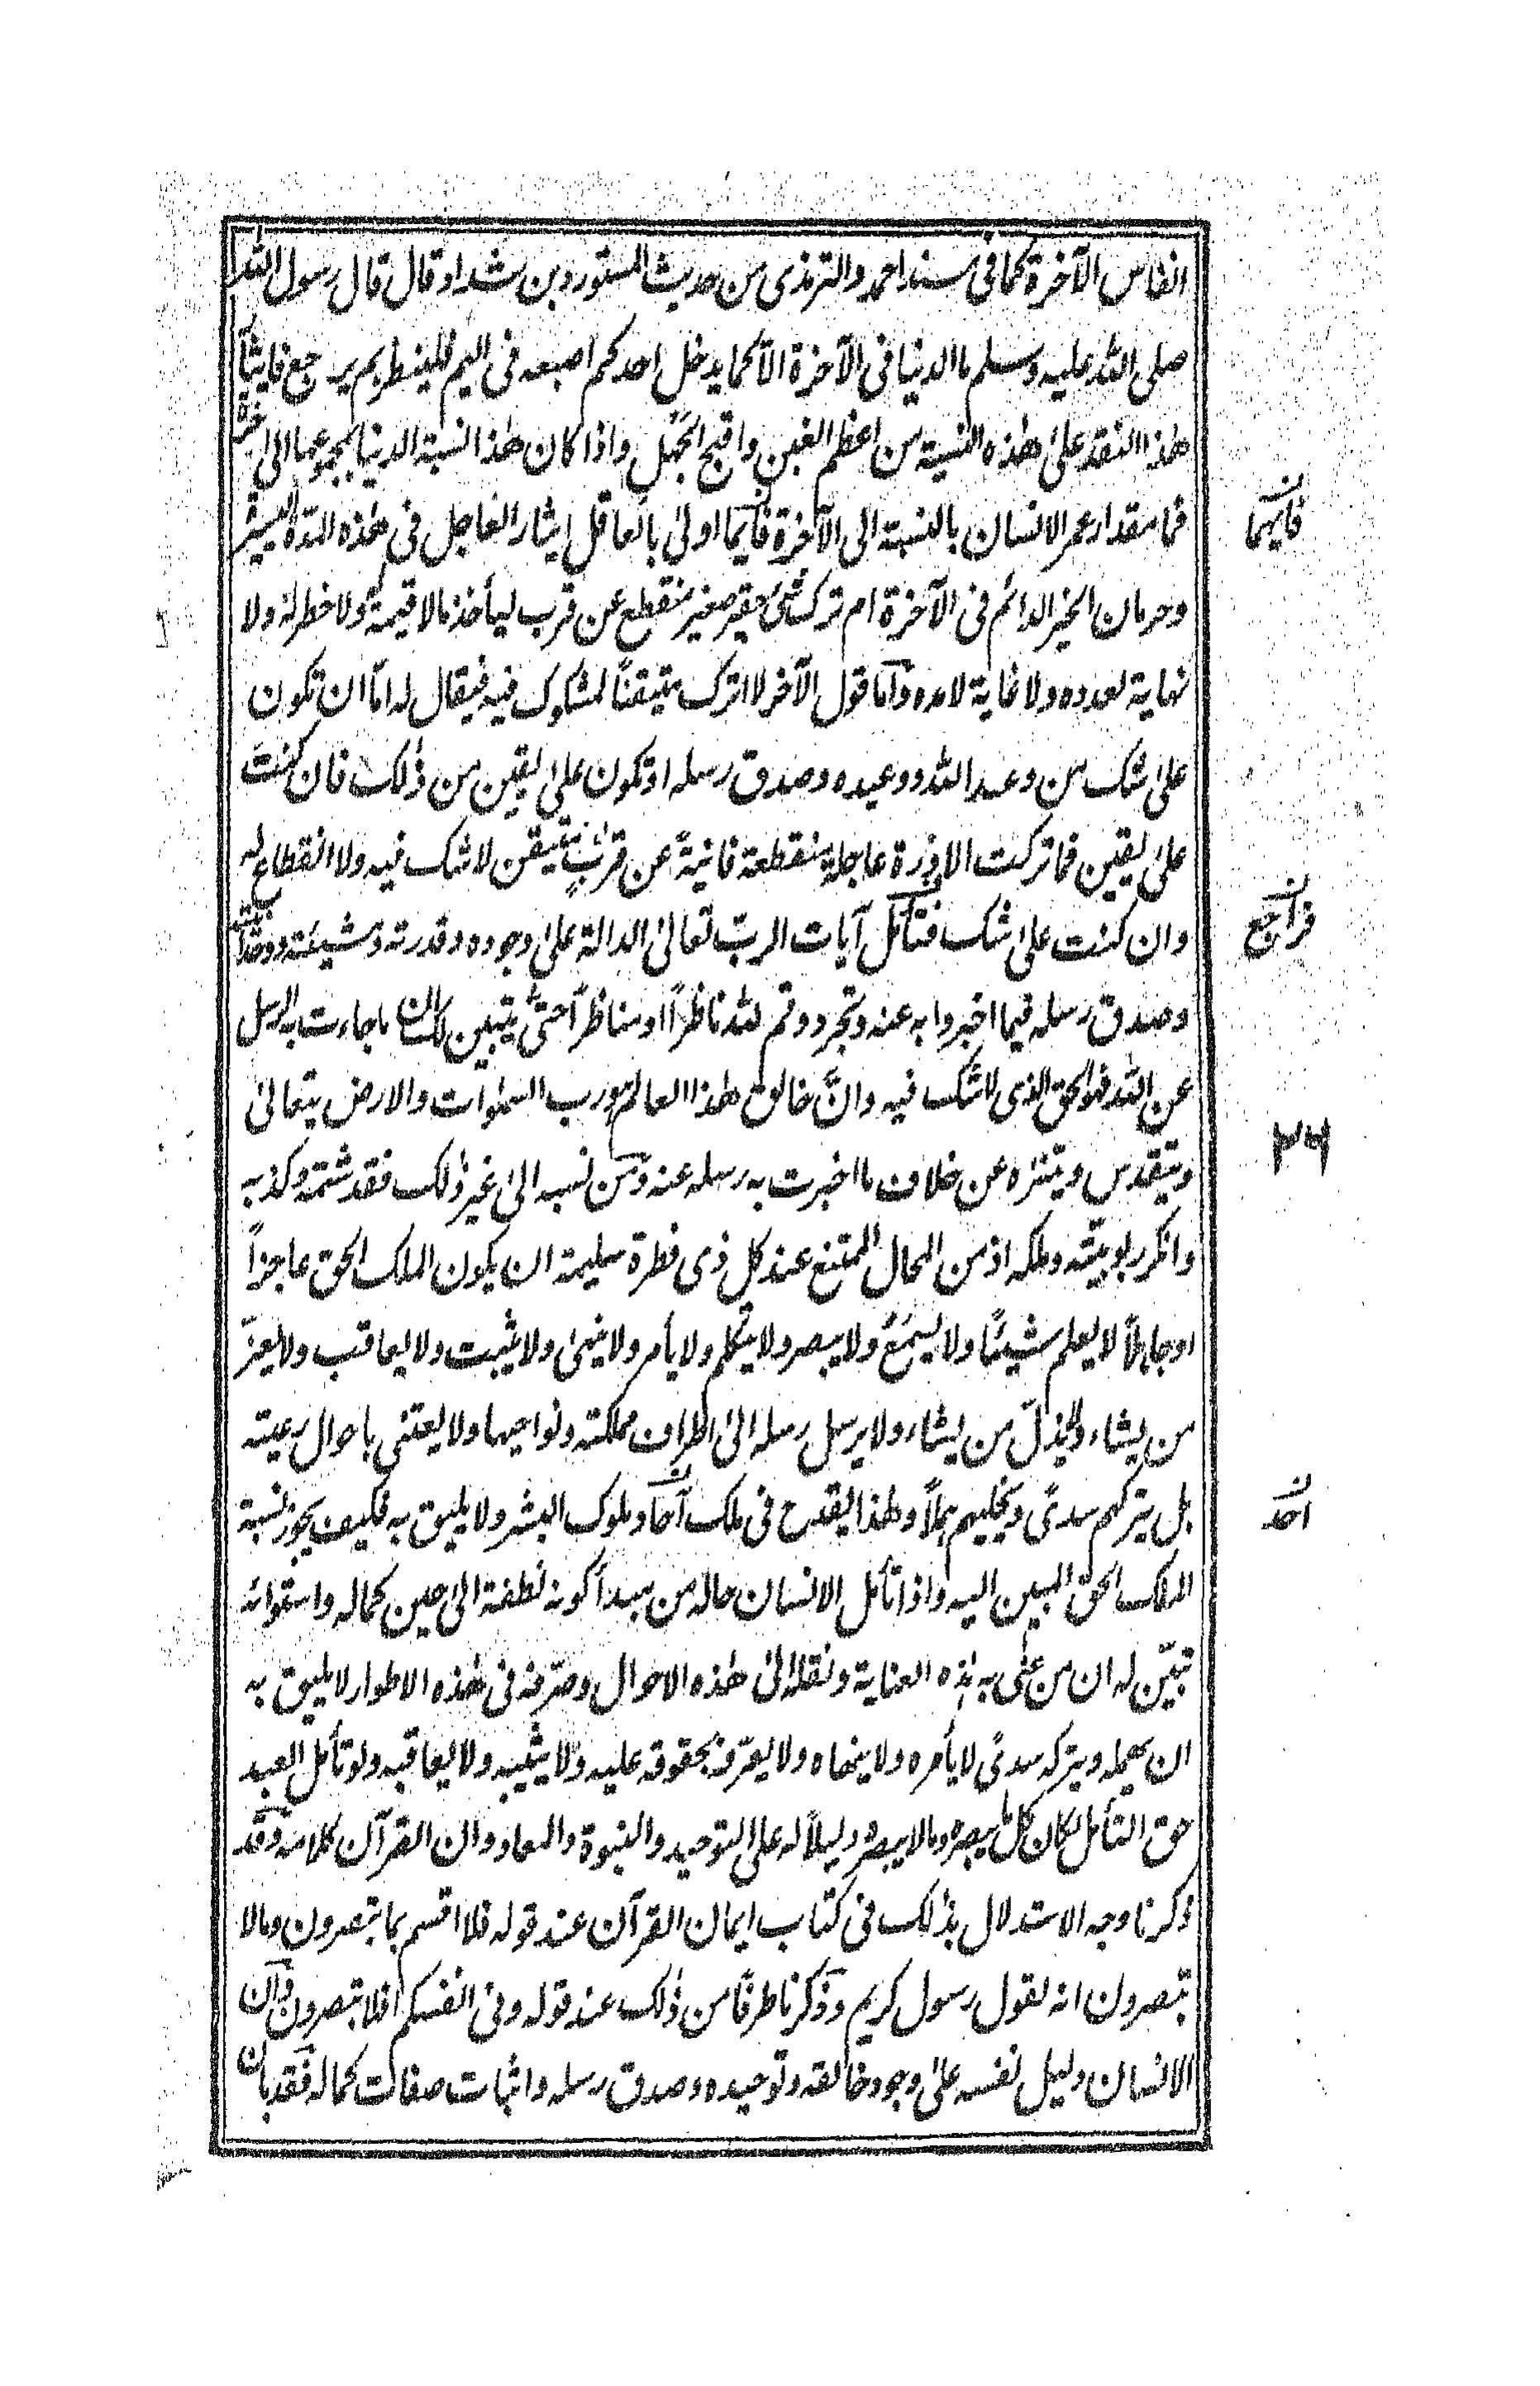 انفاس الآخرة كما فى مسند احمد والترمذى من حديث المستورد بن شداد قال قال رسول الله
صلى الله عليه وسلم ما الدنيا فى الآخرة الا كما يدخل احدكم اصبعه فى اليم فلينظر بم يرجع فايثار
هذا النقد على هذه النسيئة من اعظم الغبن واقبح الجهل واذا كان هذا نسبة الدنيا بمجموعها الى الآخرة
فما مقدار عمر الانسان بالنسبة الى الآخرة فايما اولى بالعاقل ايثار العاجل فى هذه المدة اليسيرة
وحرمان الخير الدائم فى الآخرة ام ترك شئ حقير صغير منقطع عن قرب ليأخذ مالا قيمة له ولا خطر له ولا
نهاية لعدده ولا غاية لامده واما قول الآخر لا اترك متيقناً لمشكوك فيه فيقال له اما ان تكون
على شك من وعد الله ووعيده وصدق رسله او تكون على يقين من ذٰلك فان كنت
على يقين فما تركت الا ذرة عاجلة منقطعة فانية عن قرب لأمر متيقن لا شك فيه ولا انقطاع له
وان كنت على شك فتأمل آيات الرب تعالى الدالة على وجوده وقدرته ومشيئته ووحدانيته
وصدق رسله فيما اخبروا به عنه وتجرد وقم لله ناظراً او مناظراً حتى يتبين لك ان ما جاءت به الرسل
عن الله فهو الحق الذى لا شك فيه وانّ خالق هذا العالم ورب السمٰوات والارض يتعالى
ويتقدس ويتنزه عن خلاف ما اخبرت به رسله عنه ومن نسبه الى غير ذٰلك فقد شتمه وكذبه
وانكر ربوبيته وملكه اذ من المحال الممتنع عند كل ذى فطرة سليمة ان يكون الملك الحق عاجزاً
او جاهلاً لا يعلم شيئاً ولا يسمع ولا يبصر ولا يتكلم ولا يأمر ولا ينهى ولا يثيب ولا يعاقب ولا يعزّ
من يشاء ويذلّ من يشاء ولا يرسل رسله الى اطراف مملكته ونواحيها ولا يعتنى باحوال رعيته
بل يتركهم سدى ويخليهم هملاً وهذا يقدح فى ملك آحاد ملوك البشر ولا يليق به فكيف يجوز نسبة
الملك الحق المبين اليه واذا تأمل الانسان حاله من مبدأ كونه نطفة الى حين كماله واستوائه
تبيّن له ان من عنى به هذه العناية ونقله الى هذه الاحوال وصرّفه فى هذه الاطوار لا يليق به
ان يهمله ويتركه سدى لا يأمره ولا ينهاه ولا يعرّفه بحقوقه عليه ولا يثيبه ولا يعاقبه ولو تأمل العبد
حق التأمل لكان كل ما يبصره وما لا يبصره دليلاً له على التوحيد والنبوة والمعاد وان القرآن كلامه وقد
ذكرنا وجه الاستدلال بذٰلك فى كتاب ايمان القرآن عند قوله فلا اقسم بما تبصرون وما لا
تبصرون انه لقول رسول كريم وذكرنا طرفاً من ذٰلك عند قوله وفى انفسكم افلا تبصرون وان
الانسان دليل نفسه على وجود خالقه وتوحيده وصدق رسله واثبات صفات كماله فقد بان
فايهما
٢٦